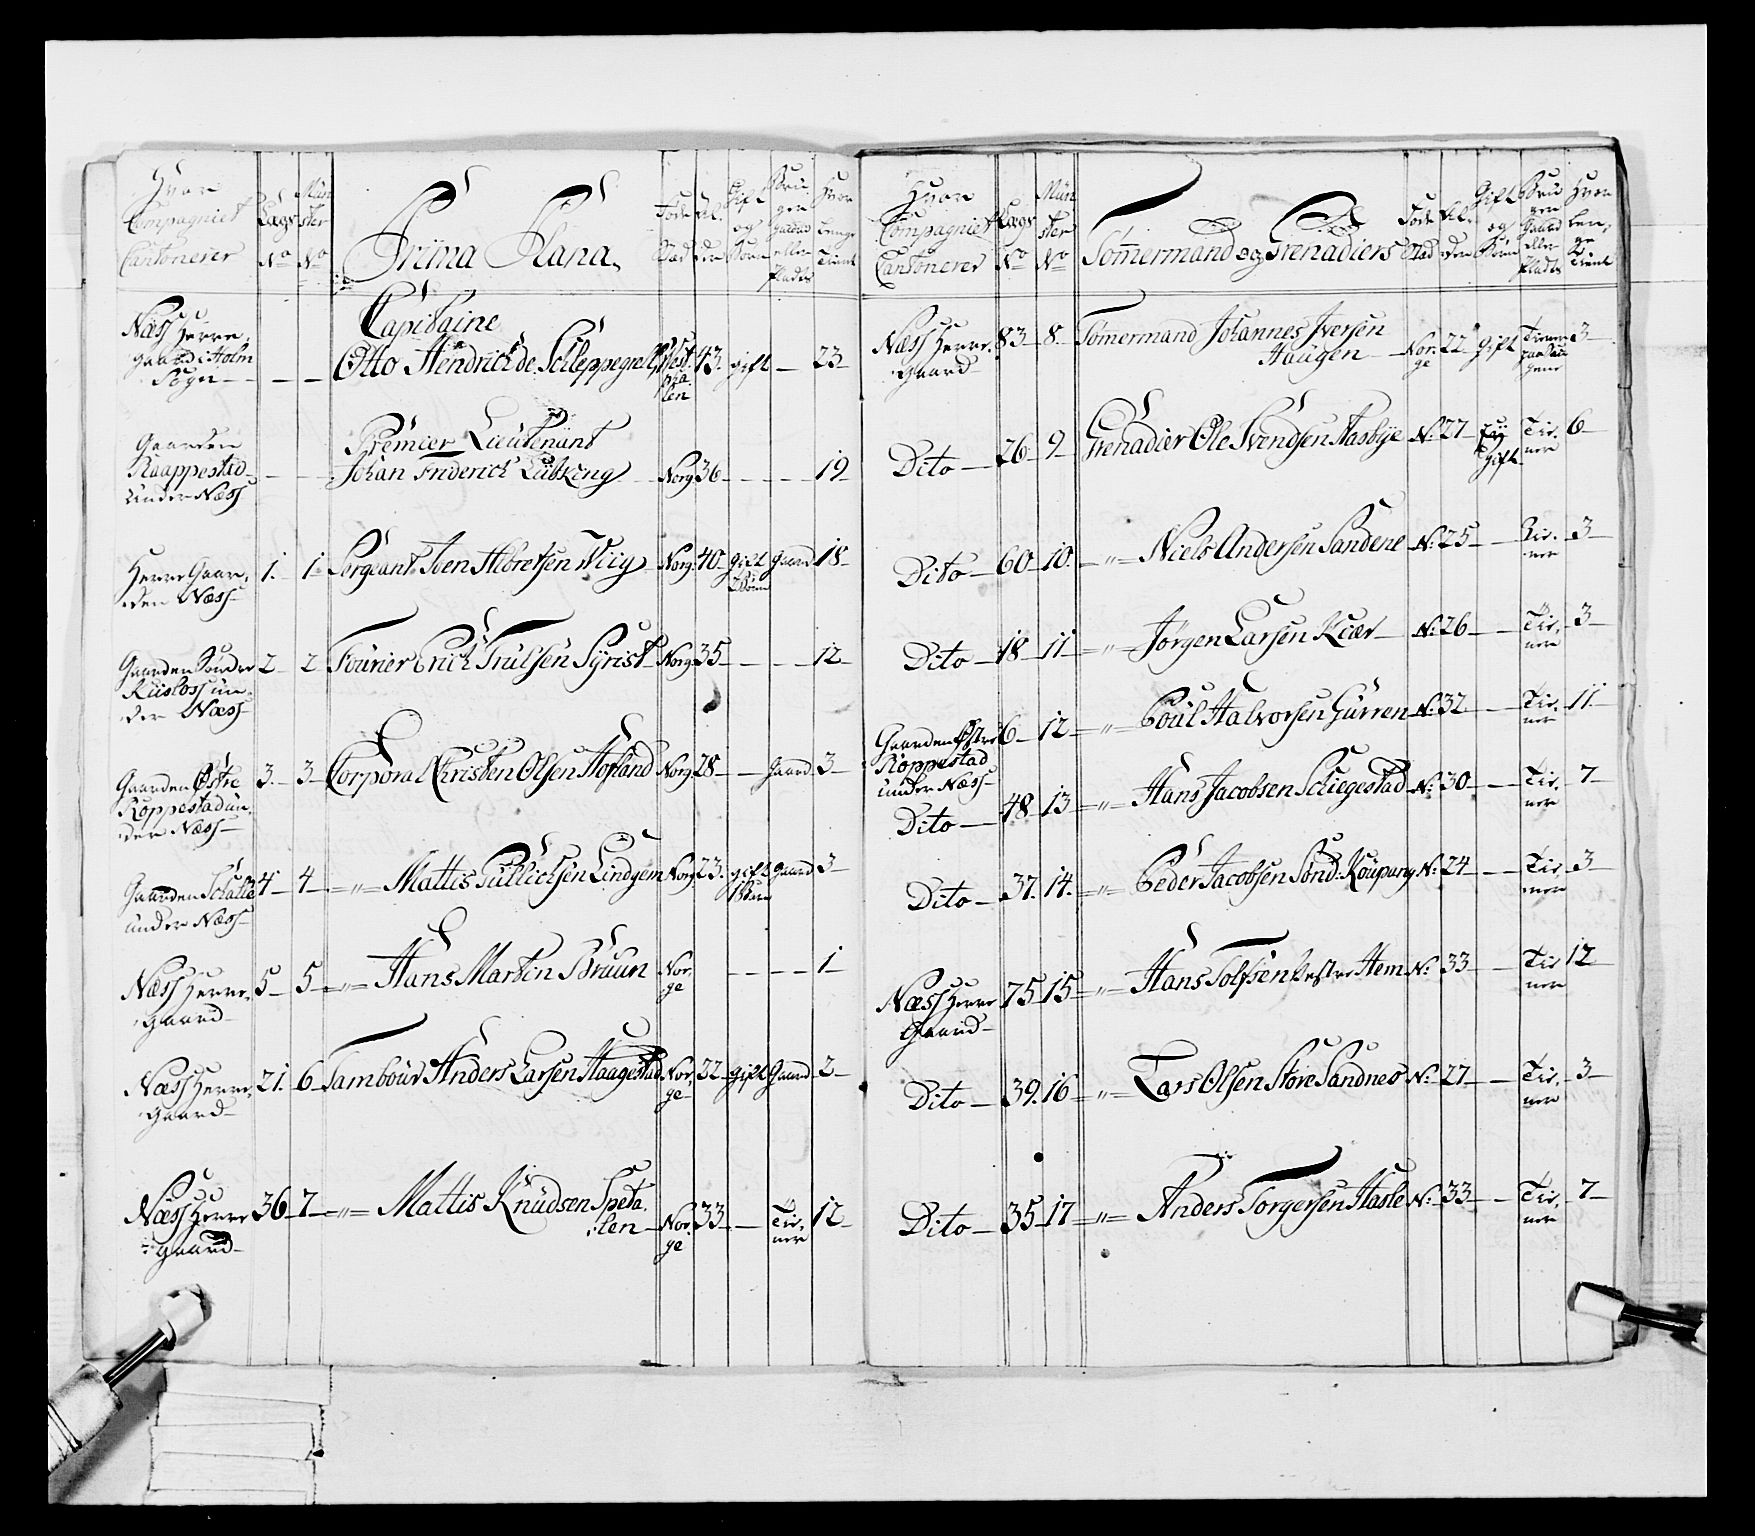 Hvor Compagniet Cantonerer | Lægs No | Mün ster No | Prima Plana | Føde Stæd | Al der | Gift og Børn | Bru ger Gaard eller Pladts | Hvor lenge Tient
Capitaine
Næss Herre gaard i Holm Sogn — — — Otto Hendrich de Schleppegrell West pha len 43. gift — 23
Premier Lieutenant
Gaarden Raappestad under Næss — — — Johan Friderich Lübking Norg 36 — — 19
Herre Gaar den Næss 1. 1 Sergeant Joen Albretsen Wiig Norg 40 gift Børn Gaard 18
Gaarden Søndre Riisloss ün der Næss 2 2 Fourier Erich Trulsen Norg 35 — — 12
Gaarden Østre Roppestad ün der Næss 3. 3 Corporal Christen Olsen Hofland Norg 28 — Gaard 3
Gaarden under Næss 4 4 — " — Mattis Gullichsen Lindjem Norg 23. gift 1 Barn Gaard 3
Næss Herre gaard 5 5 — " — Hans Martin Bruun Nor ge — — — 1
Næss Herre gaard 21. 6 Tambour Anders Larsen Haagestad Nor ge 22 gift Gaard 2
Næss Herre gaard 36 7 — " — Mattis Knudsen Speta len Nor ge 33 — Tie ner 12
Hvor Compagniet Cantonerer | Lægs No | Mün ster No | Tømmermand og Grenadiers | Føde Stad | Al der | Gift og Børn | Bru ger Gaard eller Pladts | Hvor len ge Tient
Næss Herre Gaard 83 8 Tømermand Johannes Iversen Haugen Nor ge 22 gift 3
Dito 26 9 Grenadier Ole Svendsen Aasbye N: 27 gift Tie ner 6
Dito 60 10. — " — Niels Andersen Sandene N: 25 — Tie ner 3
Dito 18 11 — " — Jørgen Larsen Kiær N: 26 — Tie ner 3
Gaarden Østre Roppestad under Næss 6 12 — " — Poul Halvorsen Gurren N: 32 — Tie ner 11
Dito 48 13 — " — Hans Jacobsen Schiegestad N: 30 — Tie ner 7
Dito 37. 14. — " — Peder Jacobsen Sønd. Koupang N: 24 — Tie ner 3
Næss Herre Gaard 75 15 — " — Hans Tolfsen Vestre Hem N: 33 — Tie ner 12
Dito 39. 16 — " — Lars Olsen Store Sandnes N: 27 — Tie ner 3
Dito 35 17 — " — Anders Torgersen Hasle N: 33 — Tie ner 7